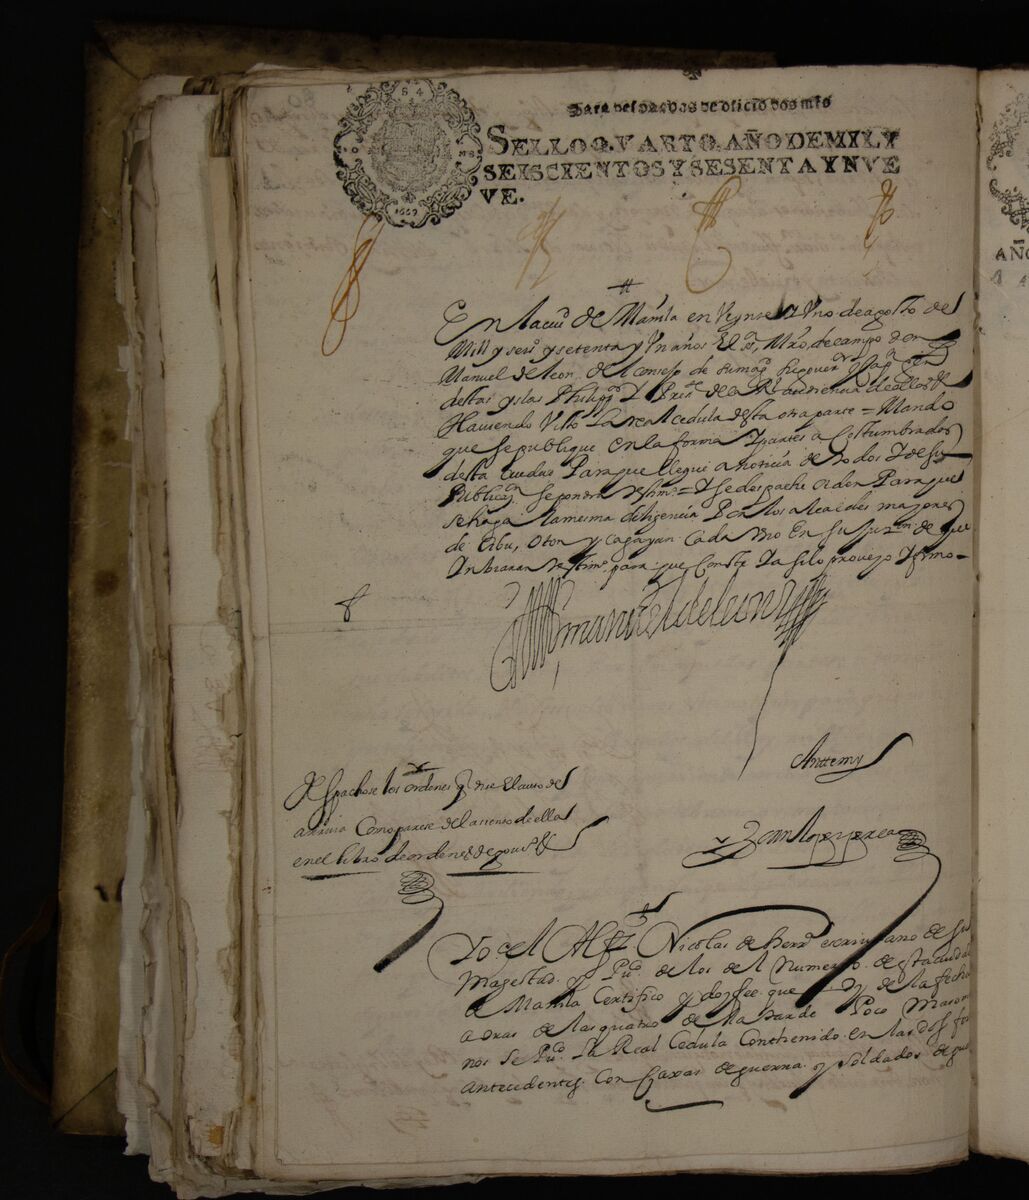 Para despachos de oficio dos mrs
SELLO Q.VARTO, AÑO DE MIL Y
SEISCIENTOS Y SESENTA Y NVE
VE.
1669
En la ciud de Manila en Veynte y Uno de agosto de
Mill y seiso y setenta y Un años El sr Mro de campo don
Manuel de leon del Consejo de su magd su gover
destas yslas Philipas Y Preste de la Rl audiencia de ellas
Haviendo Visto la real cedula desta otra parte = Mando
que se publique en la forma Y partes acostumbradas
desta ciudad Para que llegue a noticia de todos Y de su
Publicon se pondra testimo = Y se despache orden Para que
se haga la mesma diligencia Por los alcaldes mayores
de Cibu, Oton y Cagayan Cada Uno En su jurn de que
Inbiaran testimo para que Conste Y asi lo proveyo Y firmo =
manuel de leon
Anttemy
Despachose los ordenes q dise el auto de
arriva Como parese del asiento de ellas
en el libro de ordenes de govno
Juan lopez perea
Yo el Alfz Nicolas de herra escrivano de su
Magestad y Puco de los del Numero de esta ciudad
de Manila Certifico y doy fee que oy dia de la fecha
a oras de las quatro de la tarde Poco mas o me
nos se Puco la Real Cedula Conthenida en las dos fos
antecedentes Con Caxas de guerra y soldados de
AÑO